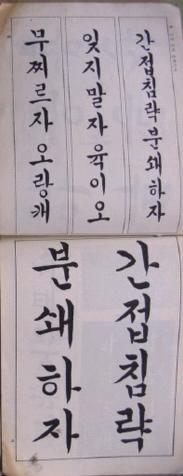 간접침략분쇄하자
잊지말자육이오
무찌르자오랑캐
간접침략
분쇄하자